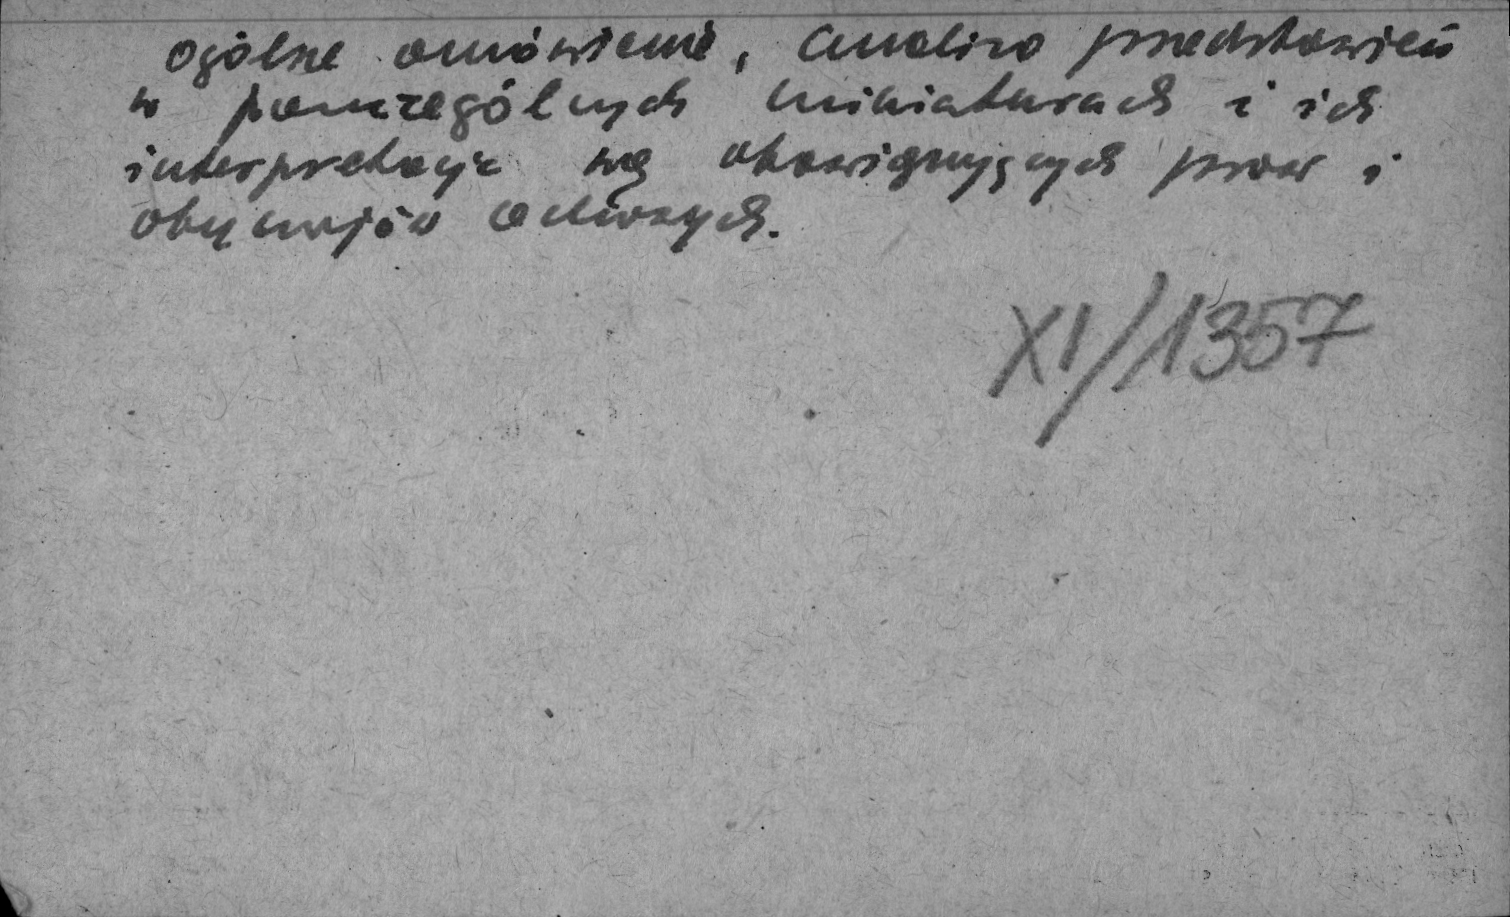 ogólne omówienie, analiza przedstawień
w poszczególnych miniaturach i ich
interpretacje wg obowiązujących praw i
obyczajów cechowych.
XI/1357